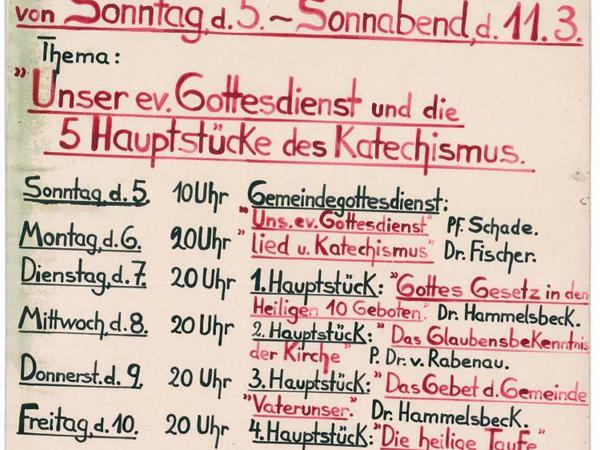 von Sonntag, d. 5. ~ Sonnabend, d. 11. 3.
Thema:
"Unser ev. Gottesdienst und die
5 Hauptstücke des Katechismus.
Sonntag, d. 5. 10 Uhr Gemeindegottesdienst:
"Uns. ev. Gottesdienst" Pf. Schade.
Montag, d. 6. 20 Uhr "Lied u. Katechismus" Dr. Fischer.
Dienstag, d. 7. 20 Uhr 1. Hauptstück: "Gottes Gesetz in den
Heiligen 10 Geboten." Dr. Hammelsbeck.
Mittwoch, d. 8. 20 Uhr 2. Hauptstück: "Das Glaubensbekenntnis
der Kirche" P. Dr. v. Rabenau.
Donnerst. d. 9. 20 Uhr 3. Hauptstück: "Das Gebet d. Gemeinde
"Vaterunser." Dr. Hammelsbeck.
Freitag, d. 10. 20 Uhr 4. Hauptstück: "Die heilige Taufe"